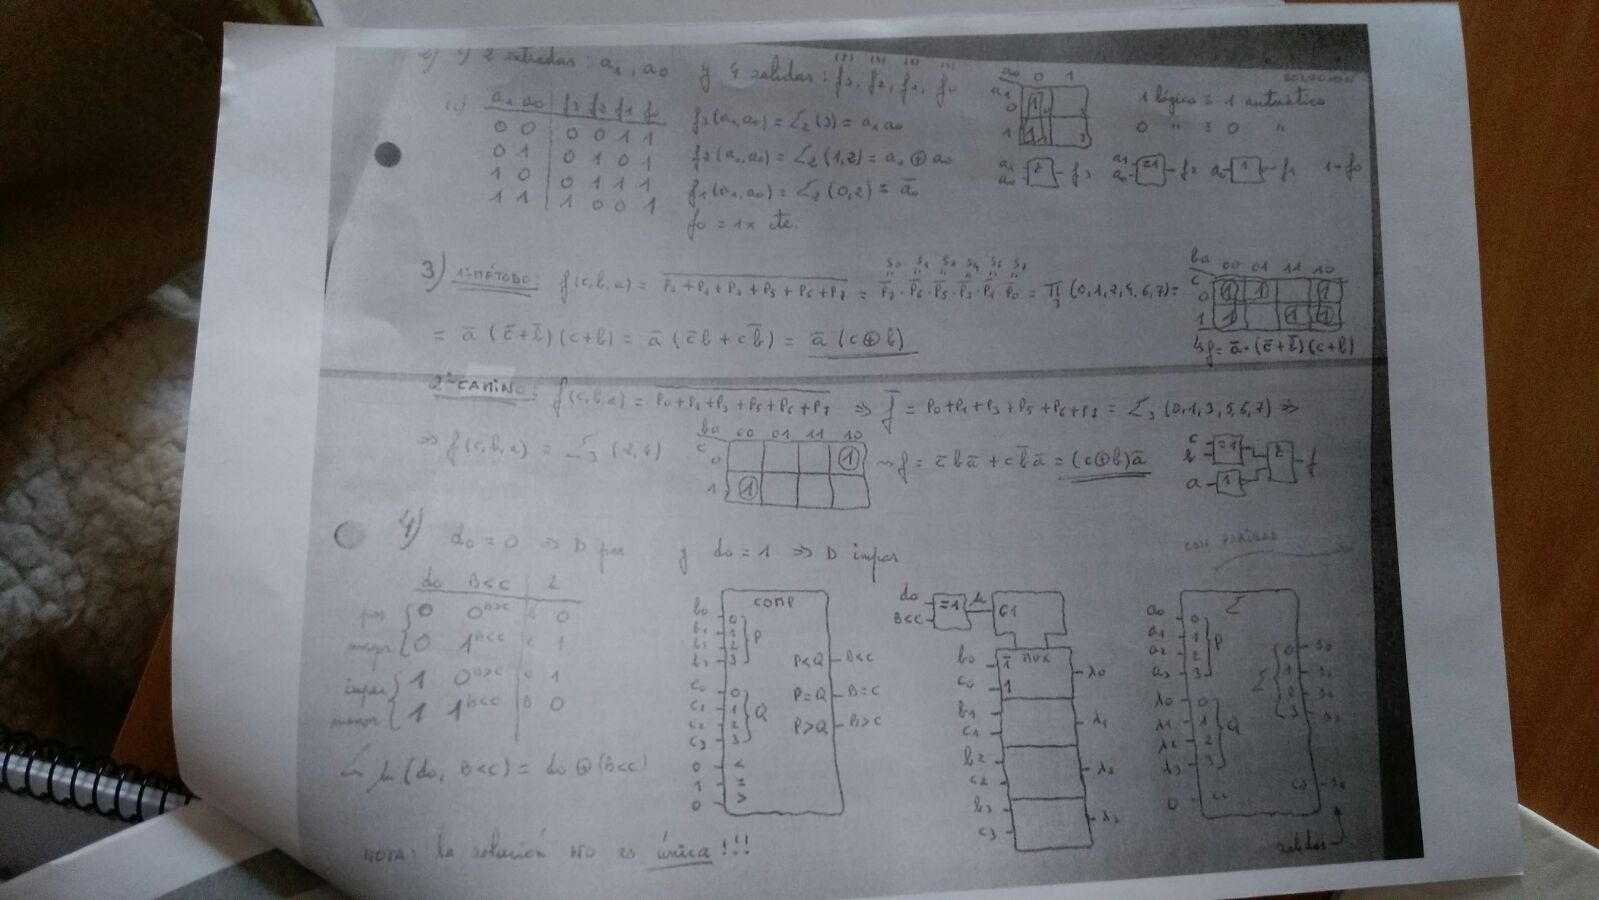 2) 4) 2 entradas: a1, a0 y 4 salidas: f3, f2, f1, f0
(8) (4) (2) (1)
a1 a0 f3 f2 f1 f0
0 0 0 0 1 1
0 1 0 1 0 1
1 0 0 1 1 1
1 1 1 0 0 1
f3(a1,a0) = Σ2(3) = a1 a0
f2(a1,a0) = Σ2(1,2) = a1 ⊕ a0
f1(a1,a0) = Σ2(0,2) = a̅0
f0 = 1 cte.
a0 0 1
a1
0 1
1 1 3
1 lógico ≡ 1 aritmético
0 " ≡ 0 "
a1 a0 f3 a1 a0 =1 f2 a0 1 f1 1-f0
3) 1er MÉTODO: f(c,b,a) = P0+P1+P3+P5+P6+P7 = P̅7·P̅6·P̅5·P̅3·P̅1·P̅0 = Π3(0,1,2,4,6,7) =
S0 S1 S2 S4 S6 S7
ba 00 01 11 10
c
0 1 1 1
1 1 1 1
= a̅ (c̅+b̅)(c+b) = a̅ (c̅b + cb̅) = a̅ (c⊕b)
↳ f = a̅·(c̅+b̅)(c+b)
2º CAMINO: f(c,b,a) = P0+P1+P3+P5+P6+P7 ⇒ f̅ = P0+P1+P3+P5+P6+P7 = Σ3(0,1,3,5,6,7) ⇒
⇒ f(c,b,a) = Σ3(2,4)
ba 00 01 11 10
c
0 1
1 1
f = c̅ba̅ + cb̅a̅ = (c⊕b)a̅
c b =1 a 1 f
4) d0 = 0 ⇒ D par y d0 = 1 ⇒ D impar
d0 B<C
par 0 0 B>C B 0
mayor 0 1 B<C C 1
impar 1 0 B>C C 1
menor 1 1 B<C B 0
↳ μ(d0, B<C) = d0 ⊕ (B<C)
COMP
b0 0
b1 1 P
b2 2
b3 3
c0 0
c1 1 Q
c2 2
c3 3
0 <
1 =
0 >
P<Q B<C
P=Q B=C
P>Q B>C
d0
B<C =1 μ G1
MUX
b0 1̅
c0 1 λ0
b1
c1 λ1
b2
c2 λ2
b3
c3 λ3
Σ
a0 0
a1 1 P
a2 2
a3 3
λ0 0
λ1 1 Q
λ2 2
λ3 3
0
Σ 0 1 2 3
salidas
NOTA: la solución NO es única!!!